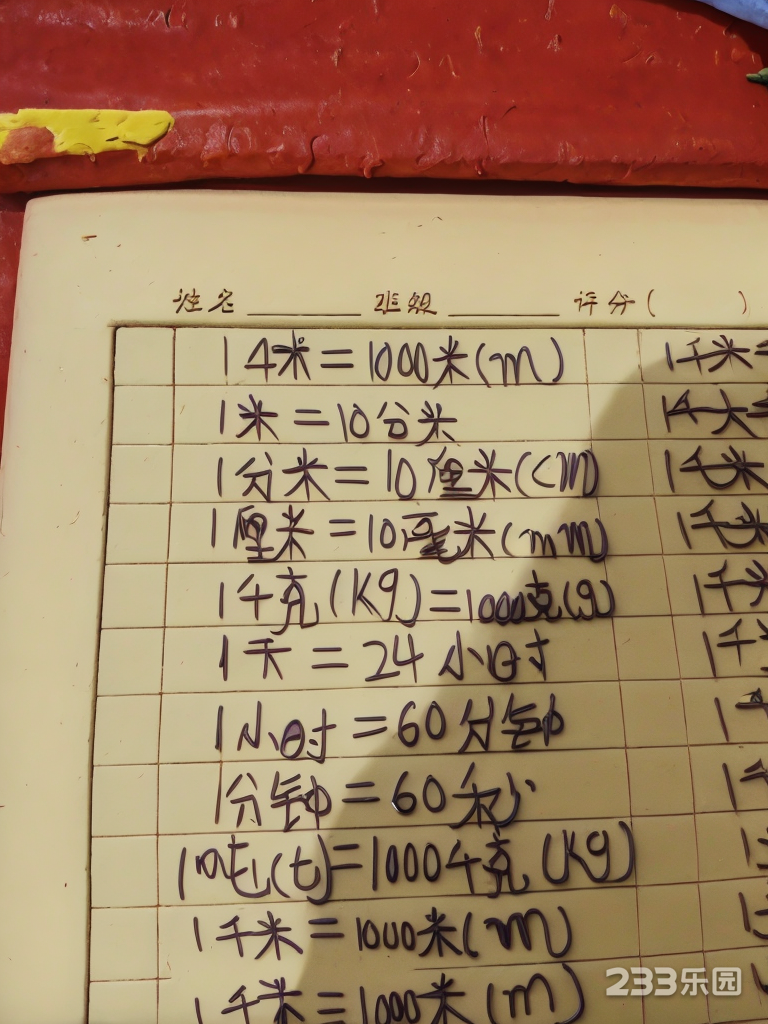 姓名 班级 评分( )
1千米=1000米(m)
1米=10分米
1分米=10厘米(cm)
1厘米=10毫米(mm)
1千克(Kg)=1000克(g)
1天=24小时
1小时=60分钟
1分钟=60秒
1吨(t)=1000千克(Kg)
1千米=1000米(m)
1千米=1000米(m)
1千米
1千米
1千米
1千米
1千
1千
1千
233乐园